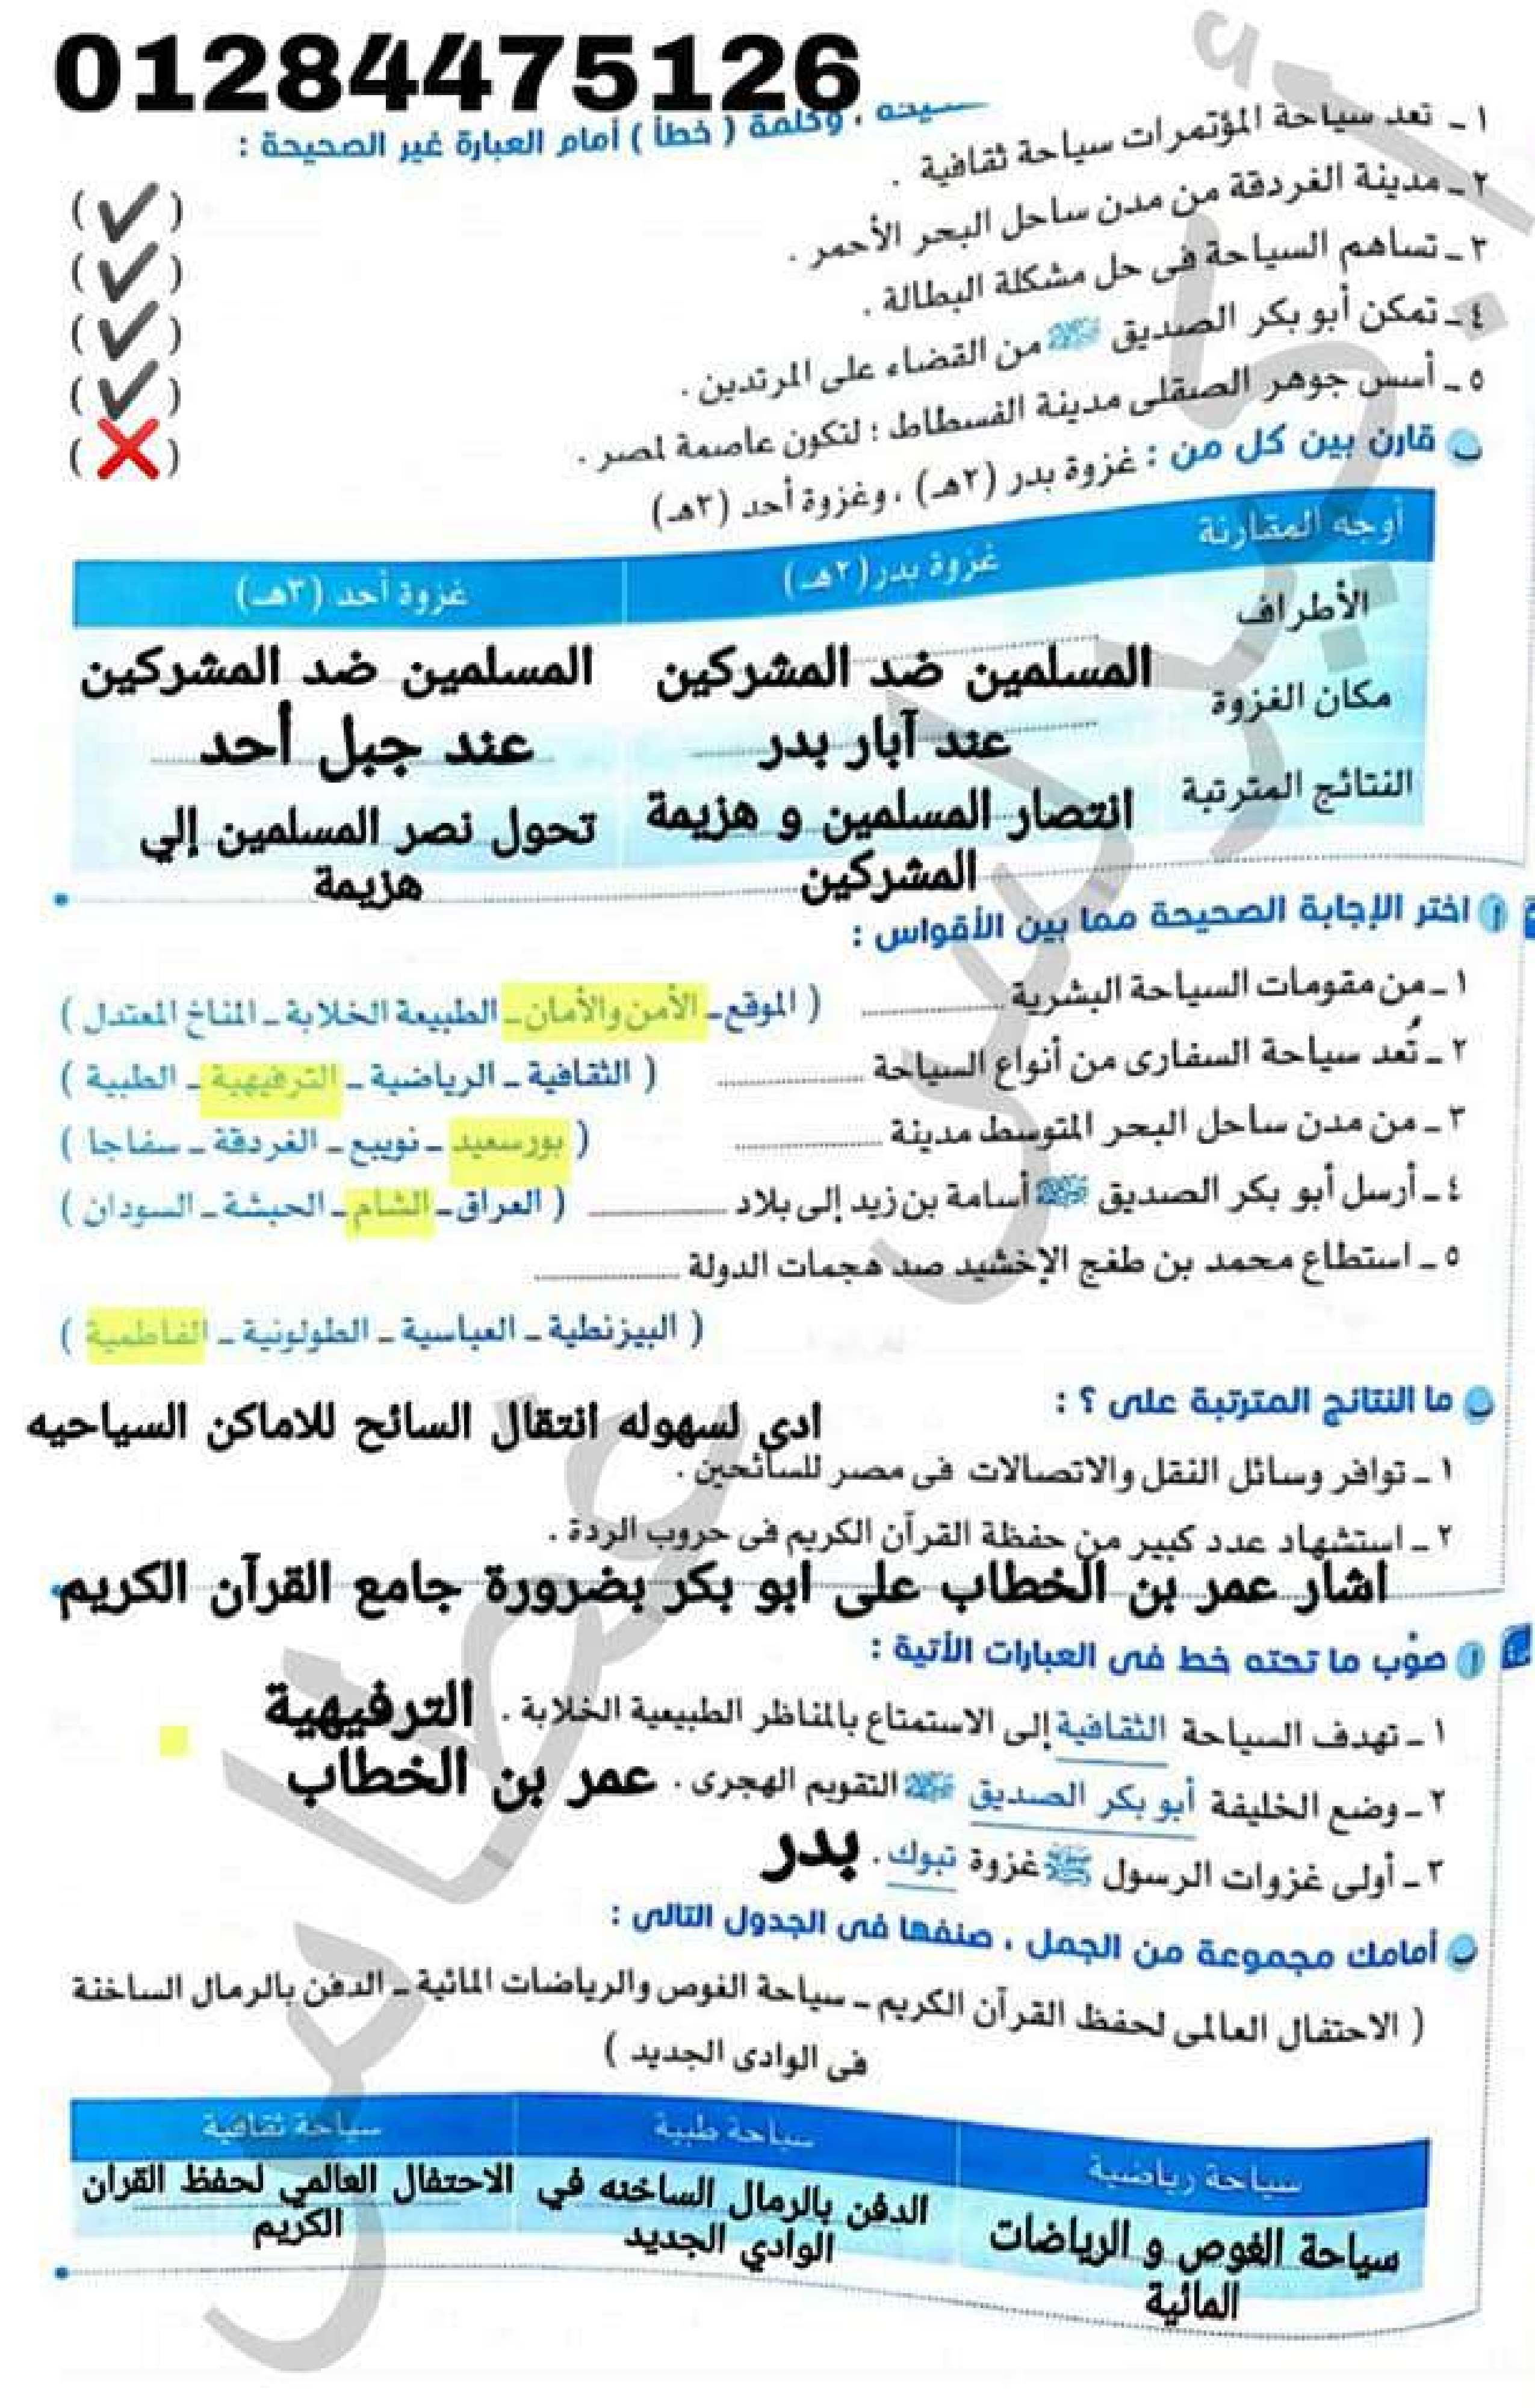 01284475126
، وكلمة ( خطأ ) أمام العبارة غير الصحيحة :
١ ـ تعد سياحة المؤتمرات سياحة ثقافية . ( ✔ )
٢ ـ مدينة الغردقة من مدن ساحل البحر الأحمر . ( ✔ )
٣ ـ تساهم السياحة فى حل مشكلة البطالة . ( ✔ )
٤ ـ تمكن أبو بكر الصديق من القضاء على المرتدين . ( ✔ )
٥ ـ أسس جوهر الصقلى مدينة الفسطاط ؛ لتكون عاصمة لمصر . ( ❌ )
ب قارن بين كل من : غزوة بدر (٢هـ) ، وغزوة أحد (٣هـ)
أوجه المقارنة غزوة بدر (٢هـ) غزوة أحد (٣هـ)
الأطراف المسلمين ضد المشركين المسلمين ضد المشركين
مكان الغزوة عند آبار بدر عند جبل أحد
النتائج المترتبة انتصار المسلمين و هزيمة المشركين تحول نصر المسلمين إلي هزيمة
أ اختر الإجابة الصحيحة مما بين الأقواس :
١ ـ من مقومات السياحة البشرية .......... ( الموقع ـ الأمن والأمان ـ الطبيعة الخلابة ـ المناخ المعتدل )
٢ ـ تُعد سياحة السفارى من أنواع السياحة .......... ( الثقافية ـ الرياضية ـ الترفيهية ـ الطبية )
٣ ـ من مدن ساحل البحر المتوسط مدينة .......... ( بورسعيد ـ نويبع ـ الغردقة ـ سفاجا )
٤ ـ أرسل أبو بكر الصديق أسامة بن زيد إلى بلاد .......... ( العراق ـ الشام ـ الحبشة ـ السودان )
٥ ـ استطاع محمد بن طغج الإخشيد صد هجمات الدولة ..........
( البيزنطية ـ العباسية ـ الطولونية ـ الفاطمية )
ب ما النتائج المترتبة على ؟ :
ادى لسهوله انتقال السائح للاماكن السياحيه
١ ـ توافر وسائل النقل والاتصالات فى مصر للسائحين .
٢ ـ استشهاد عدد كبير من حفظة القرآن الكريم فى حروب الردة .
اشار عمر بن الخطاب على ابو بكر بضرورة جامع القرآن الكريم
أ صوّب ما تحته خط فى العبارات الأتية :
١ ـ تهدف السياحة الثقافية إلى الاستمتاع بالمناظر الطبيعية الخلابة . الترفيهية
٢ ـ وضع الخليفة أبو بكر الصديق التقويم الهجرى . عمر بن الخطاب
٣ ـ أولى غزوات الرسول ﷺ غزوة تبوك . بدر
ب أمامك مجموعة من الجمل ، صنفها فى الجدول التالى :
( الاحتفال العالمى لحفظ القرآن الكريم ـ سياحة الغوص والرياضات المائية ـ الدفن بالرمال الساخنة
فى الوادى الجديد )
سياحة رياضية سياحة طبية سياحة ثقافية
سياحة الغوص و الرياضات المائية الدفن بالرمال الساخنه في الوادي الجديد الاحتفال العالمي لحفظ القران الكريم